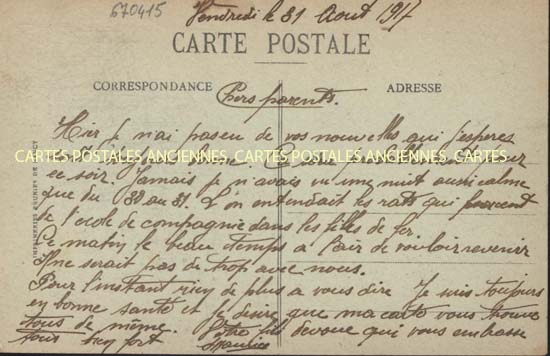 670415
Vendredi le 31 Aout 1917
CARTE POSTALE
CORRESPONDANCE
ADRESSE
Chers parents.
Hier je n'ai pas eu de vos nouvelles qui j'esperes
CARTES POSTALES ANCIENNES CARTES POSTALES ANCIENNES CARTES POSTALES ANCIENNES
ce soir. Jamais je n'avais vu une nuit aussi calme
que du 30 au 31. L'on entendait les rats qui
de l'ecole de compagnie dans les fils de fer.
Ce matin le beau temps a l'air de vouloir revenir
Il ne serait pas de trop avec nous.
Pour l'instant rien de plus a vous dire Je suis toujours
en bonne santé et je desire que ma carte vous trouve
tous de même. Votre fils devoué qui vous embrasse
tous bien fort
Maurice